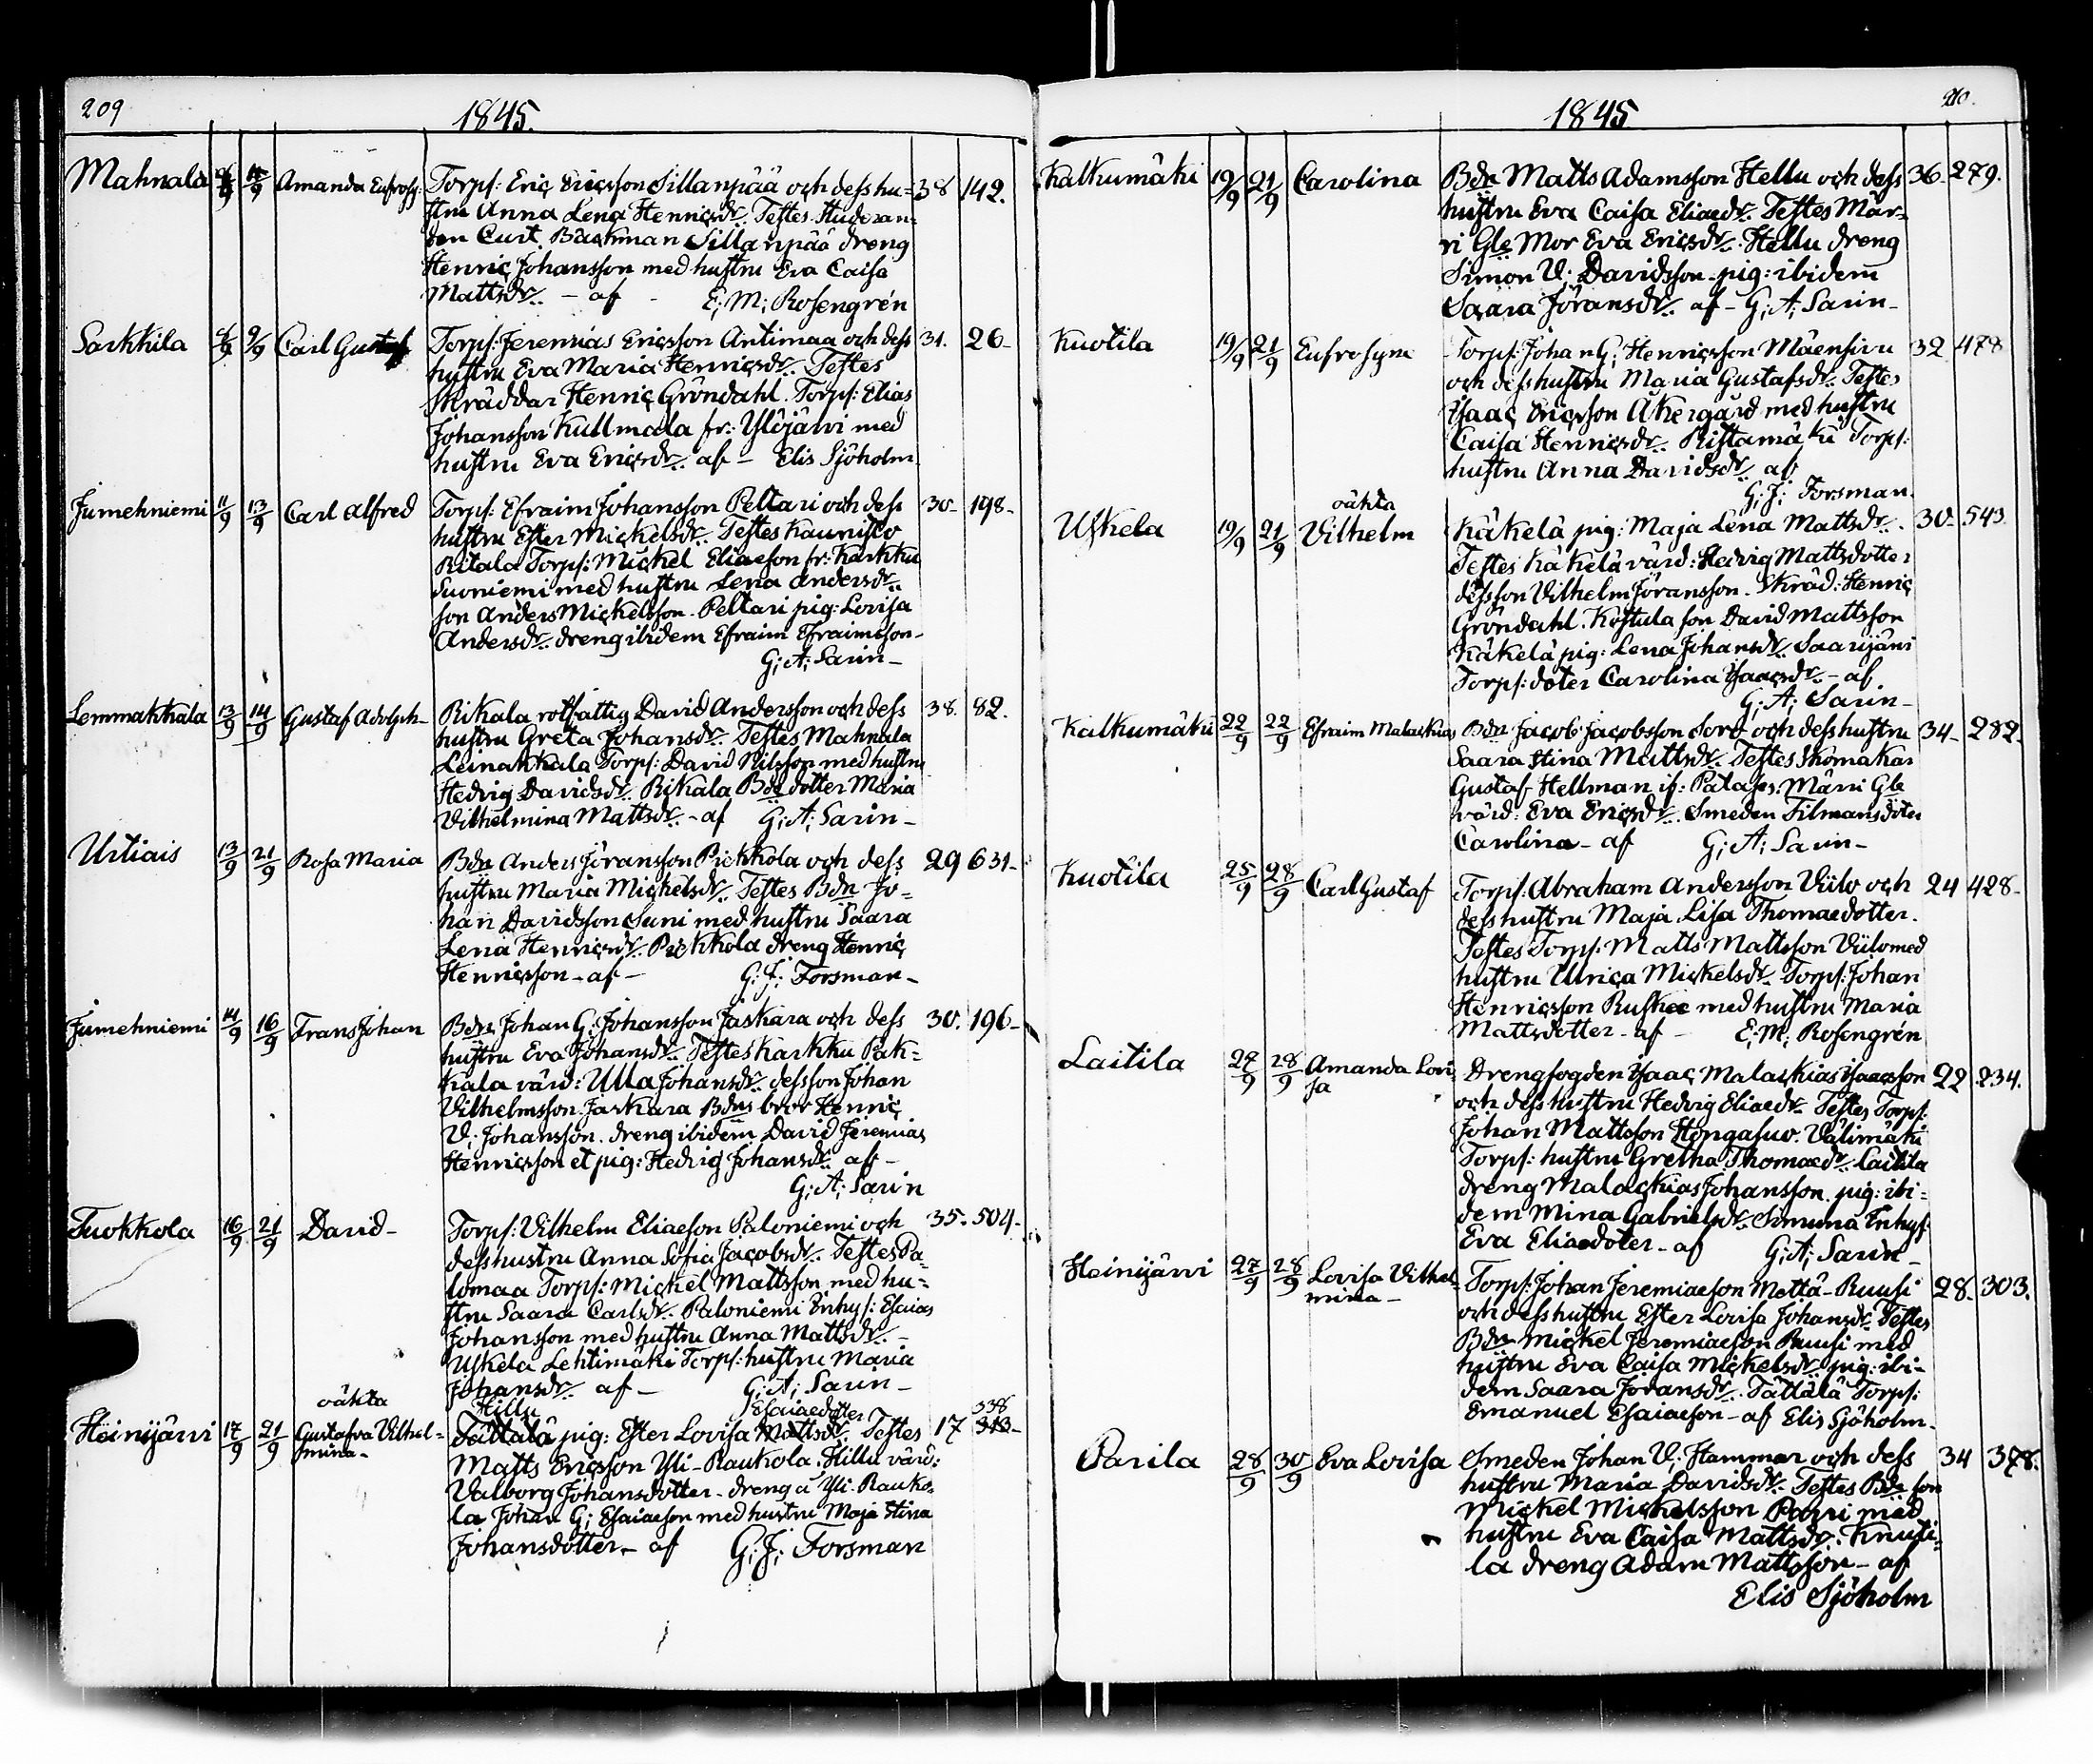 209
1845.
Mahnala 9 9 Amanda Eufrosy: Torps: Eric Ericsson Sillanpää och dess hu= 38 142.
stru Anna Lena Henricsdr. Testes Studeran=
den Curt Bäckman Sillanpää dreng
Henric Johansson med hustru Eva Caisa
Mattsdr. – af – E; M; Rosengrén
Sarkkila 9 9/9 Carl Gustaf Torps: Jeremias Ericsson Antimaa och dess 31. 26–
hustru Eva Maria Henricsdr. Testes
Skräddar Henric Gröndahl. Torps: Elias
Johansson Kullmala fr: Ylöjärvi med
hustru Eva Ericsdr. af – Elis Sjöholm
Jumehniemi 11/9 13/9 Carl Alfred Torps: Efraim Johansson Peltari och dess 30– 198–
hustru Ester Mickelsdr. Testes Kaunisto
Ritala Torps: Mickel Eliaeson fr: Karkku
Suoniemi med hustru Lena Andersdr.
son Anders Mickelsson. Peltari pig: Lovisa
Andersdr. dreng ibidem Efraim Efraimsson–
G; A; Sarin–
Lemmakkala 13/9 14/9 Gustaf Adolph– Rikala rotfattig David Andersson och dess 38. 82.
hustru Greta Johansdr. Testes Mahnala
Leinakkala Torps: David Nilsson med hustru
Hedvig Davidsdr. Rikala Bde dotter Maria
Vilhelmina Mattsdr. – af G; A; Sarin–
Urtiais 13/9 21/9 Rosa Maria Bdn Anders Jöransson Pickkola och dess 29 631–
hustru Maria Mickelsdr. Testes Bdn Jo=
han Davidsson Suni med hustru Saara
Lena Henricsdr. Pickkola dreng Henric
Henricsson – af – G; J; Forsman–
Jumehniemi 14/9 16/9 Frans Johan Bdn Johan G; Johansson Jaskara och dess 30. 196–
hustru Eva Johansdr. Testes Karkku Pak=
kala värd: Ulla Johansdr. dess son Johan
Vilhelmsson. Jaskara Bdns bror Henric
V; Johansson. dreng ibidem David Jeremias
Henricsson et pig: Hedvig Johansdr. af –
G; A; Sarin
Tuokkola 16/9 21/9 David– Torps: Vilhelm Eliaeson Paloniemi och 35– 504–
dess hustru Anna Sofia Jacobsdr. Testes Pa=
lomaa Torps: Mickel Mattsson med hu=
stru Saara Carlsdr. Paloniemi Inhys: Esaias
Johansson med hustru Anna Mattsdr. –
Uskela Lehtimäki Torps: hustru Maria
Johansdr. af – G; A; Sarin–
oäkta Hillu Esaiaedotter 338
Heinijärvi 17/9 21/9 Gustafva Vilhel= Tättälä pig: Ester Lovisa Mattsdr. Testes 17 313–
mina– Matts Ericsson Yli-Raukola. Hillu värd:
Valborg Johansdotter – dreng å Yli-Rauko=
la Johan G; Esaiaeson med hustru Maja Stina
Johansdotter – af G; J; Forsman
210.
1845
Kalkumäki 19/9 21/9 Carolina Bdn Matts Adamsson Hellu och dess 36– 279.
hustru Eva Caisa Eliaedr. Testes Mär=
ri Gle Mor Eva Ericsdr. Hellu dreng
Simon V; Davidsson pig: ibidem
Saara Jöransdr. af – G; A; Sarin–
Kuotila 19/9 21/9 Eufrosyne Torps: Johan G; Henricsson Mäensivu 32– 478
och dess hustru Maria Gustafsdr. Testes
Isaac Ericsson Åkergård med hustru
Caisa Henricsdr. Ristamäki Torps:
hustru Anna Davidsdr. af
G; J; Forsman.
oäkta
Uskela 19/9 21/9 Vilhelm Käkelä pig: Maja Lena Mattsdr. 30– 543
Testes Käkelä värd: Hedvig Mattsdotter
dess son Vilhelm Jöransson. Skräd: Henric
Gröndahl. Kostula son David Mattsson
Käkelä pig: Lena Johansdr. Saarijärvi
Torps: doter Carolina Isaacsdr. – af
G; A; Sarin–
Kalkumäki 22/9 22/9 Efraim Malackias Bdn Jacob Jacobsson Soro och dess hustru 34– 282–
Saara Stina Mattsdr. Testes Skomakar
Gustaf Hellman Märri Gle
värd: Eva Ericsdr. Smeden Tilmans doter
Carolina – af G; A; Sarin–
Kuotila 25/9 28/9 Carl Gustaf Torps: Abraham Andersson Viilo och 24 428–
dess hustru Maja Lisa Thomaedotter.
Testes Torps: Matts Mattsson Viilo med
hustru Ulrica Mickelsdr. Torps: Johan
Henricsson Ruskee med hustru Maria
Mattsdotter – af – E; M; Rosengrén
Laitila 27/9 28/9 Amanda Lovi= Drengfogden Isaac Malackias Isaacsson 22 234.
sa och dess hustru Hedvig Eliaedr. Testes Torps:
Johan Mattsson Hongasuo. Välimäki
Torps: hustru Gretha Thomaedr. Laitila
dreng Malackias Johansson. pig: ibi=
dem Mina Gabrielsdr. Simuna Inhys:
Eva Eliaedoter – af G; A; Sarin–
Heinijärvi 27/9 28/9 Lovisa Vilhel= Torps: Johan Jeremiaeson Mettä-Ruusi 28– 303.
mina– och dess hustru Ester Lovisa Johansdr. Testes
Bdn Mickel Jeremiaeson Ruusi med
hustru Eva Caisa Mickelsdr. pig: ibi=
dem Saara Jöransdr. Tättälä Torps:
Emanuel Esaiaeson – af Elis Sjöholm–
Parila 28/9 30/9 Eva Lovisa Smeden Johan V; Hammar och dess 34 378.
hustru Maria Davidsdr. Testes Bde son
Mickel Mickelsson Papri med
hustru Eva Caisa Mattsdr. Knuti=
la dreng Adam Mattsson – af
Elis Sjöholm